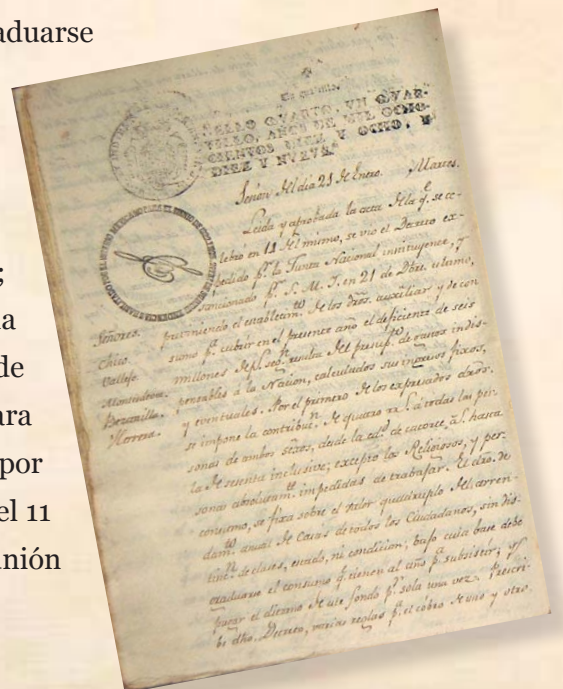 aduarse
;
a
de
ara
por
el 11
unión
SELLO QVARTO, VN QVAR-
TILLO, AÑOS DE MIL OCHO-
CIENTOS DIEZ Y OCHO, Y
DIEZ Y NUEVE.
Sesion del dia 21 de Enero. Martes.
Leida y aprobada la acta de la q.e se ce-
lebró en 11 del mismo, se vio el Decreto ex-
pedido p.r la Junta Nacional instituyente, y
sancionado p.r S. M. I. en 21 de Dbre. ultimo,
Señores.
Chico.
Vallejo.
Herrera.
previniendo el establecim.to de los dros. auxiliar y de con
sumo p.a cubrir en el presente año el deficiente de seis
millones de p.s seg.n resulta del presup.to de gastos indis-
pensables á la Nacion, calculados sus ingresos fixos,
y eventuales. Por el primero de los expresados dros.
se impone la contribu.n de quatro r.s á todas las per
sonas de ambos sexos, desde la ed.d de catorce a.s hasta
la de sesenta inclusive; excepto los Religiosos, y per
sonas absolutam.te impedidas de trabajar. El dro. de
consumo, se fixa sobre el valor quadruplo del arren-
dam.to anual de Casas de todos los Ciudadanos, sin dis-
tin.n de clases, estado, ni condicion; bajo cuia base debe
graduarse el consumo q.e tienen al año p.a subsistir, y
pagar el diezmo de este fondo p.r sola una vez. Prescri
be dho. Decreto, varias reglas p.a el cobro de uno y otro